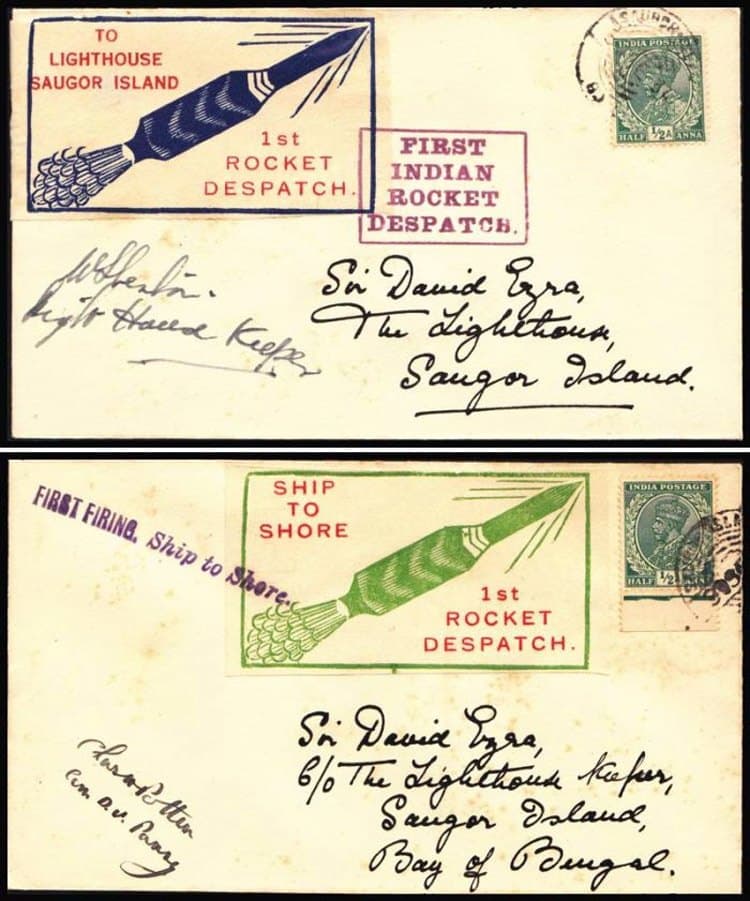 TO
LIGHTHOUSE
SAUGOR ISLAND
1st
ROCKET
DESPATCH.
INDIA POSTAGE
1/2 A
HALF ANNA
FIRST
INDIAN
ROCKET
DESPATCH.
Hand Keeper
Sir David Ezra,
The Lighthouse,
Saugor Island.
FIRST FIRING. Ship to Shore.
SHIP
TO
SHORE
1st
ROCKET
DESPATCH.
INDIA POSTAGE
1/2
HALF
Sir David Ezra,
C/o The Lighthouse Keeper,
Saugor Island,
Bay of Bengal.